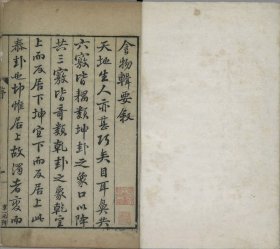 食物輯要叙
天地生人亦甚巧矣自耳鼻共
六竅皆耦數坤卦之象口以降
共三竅皆奇數乾卦之象乾宜
上而反居下坤宜下而反居上此
泰卦也坤惟居上故濁者変而